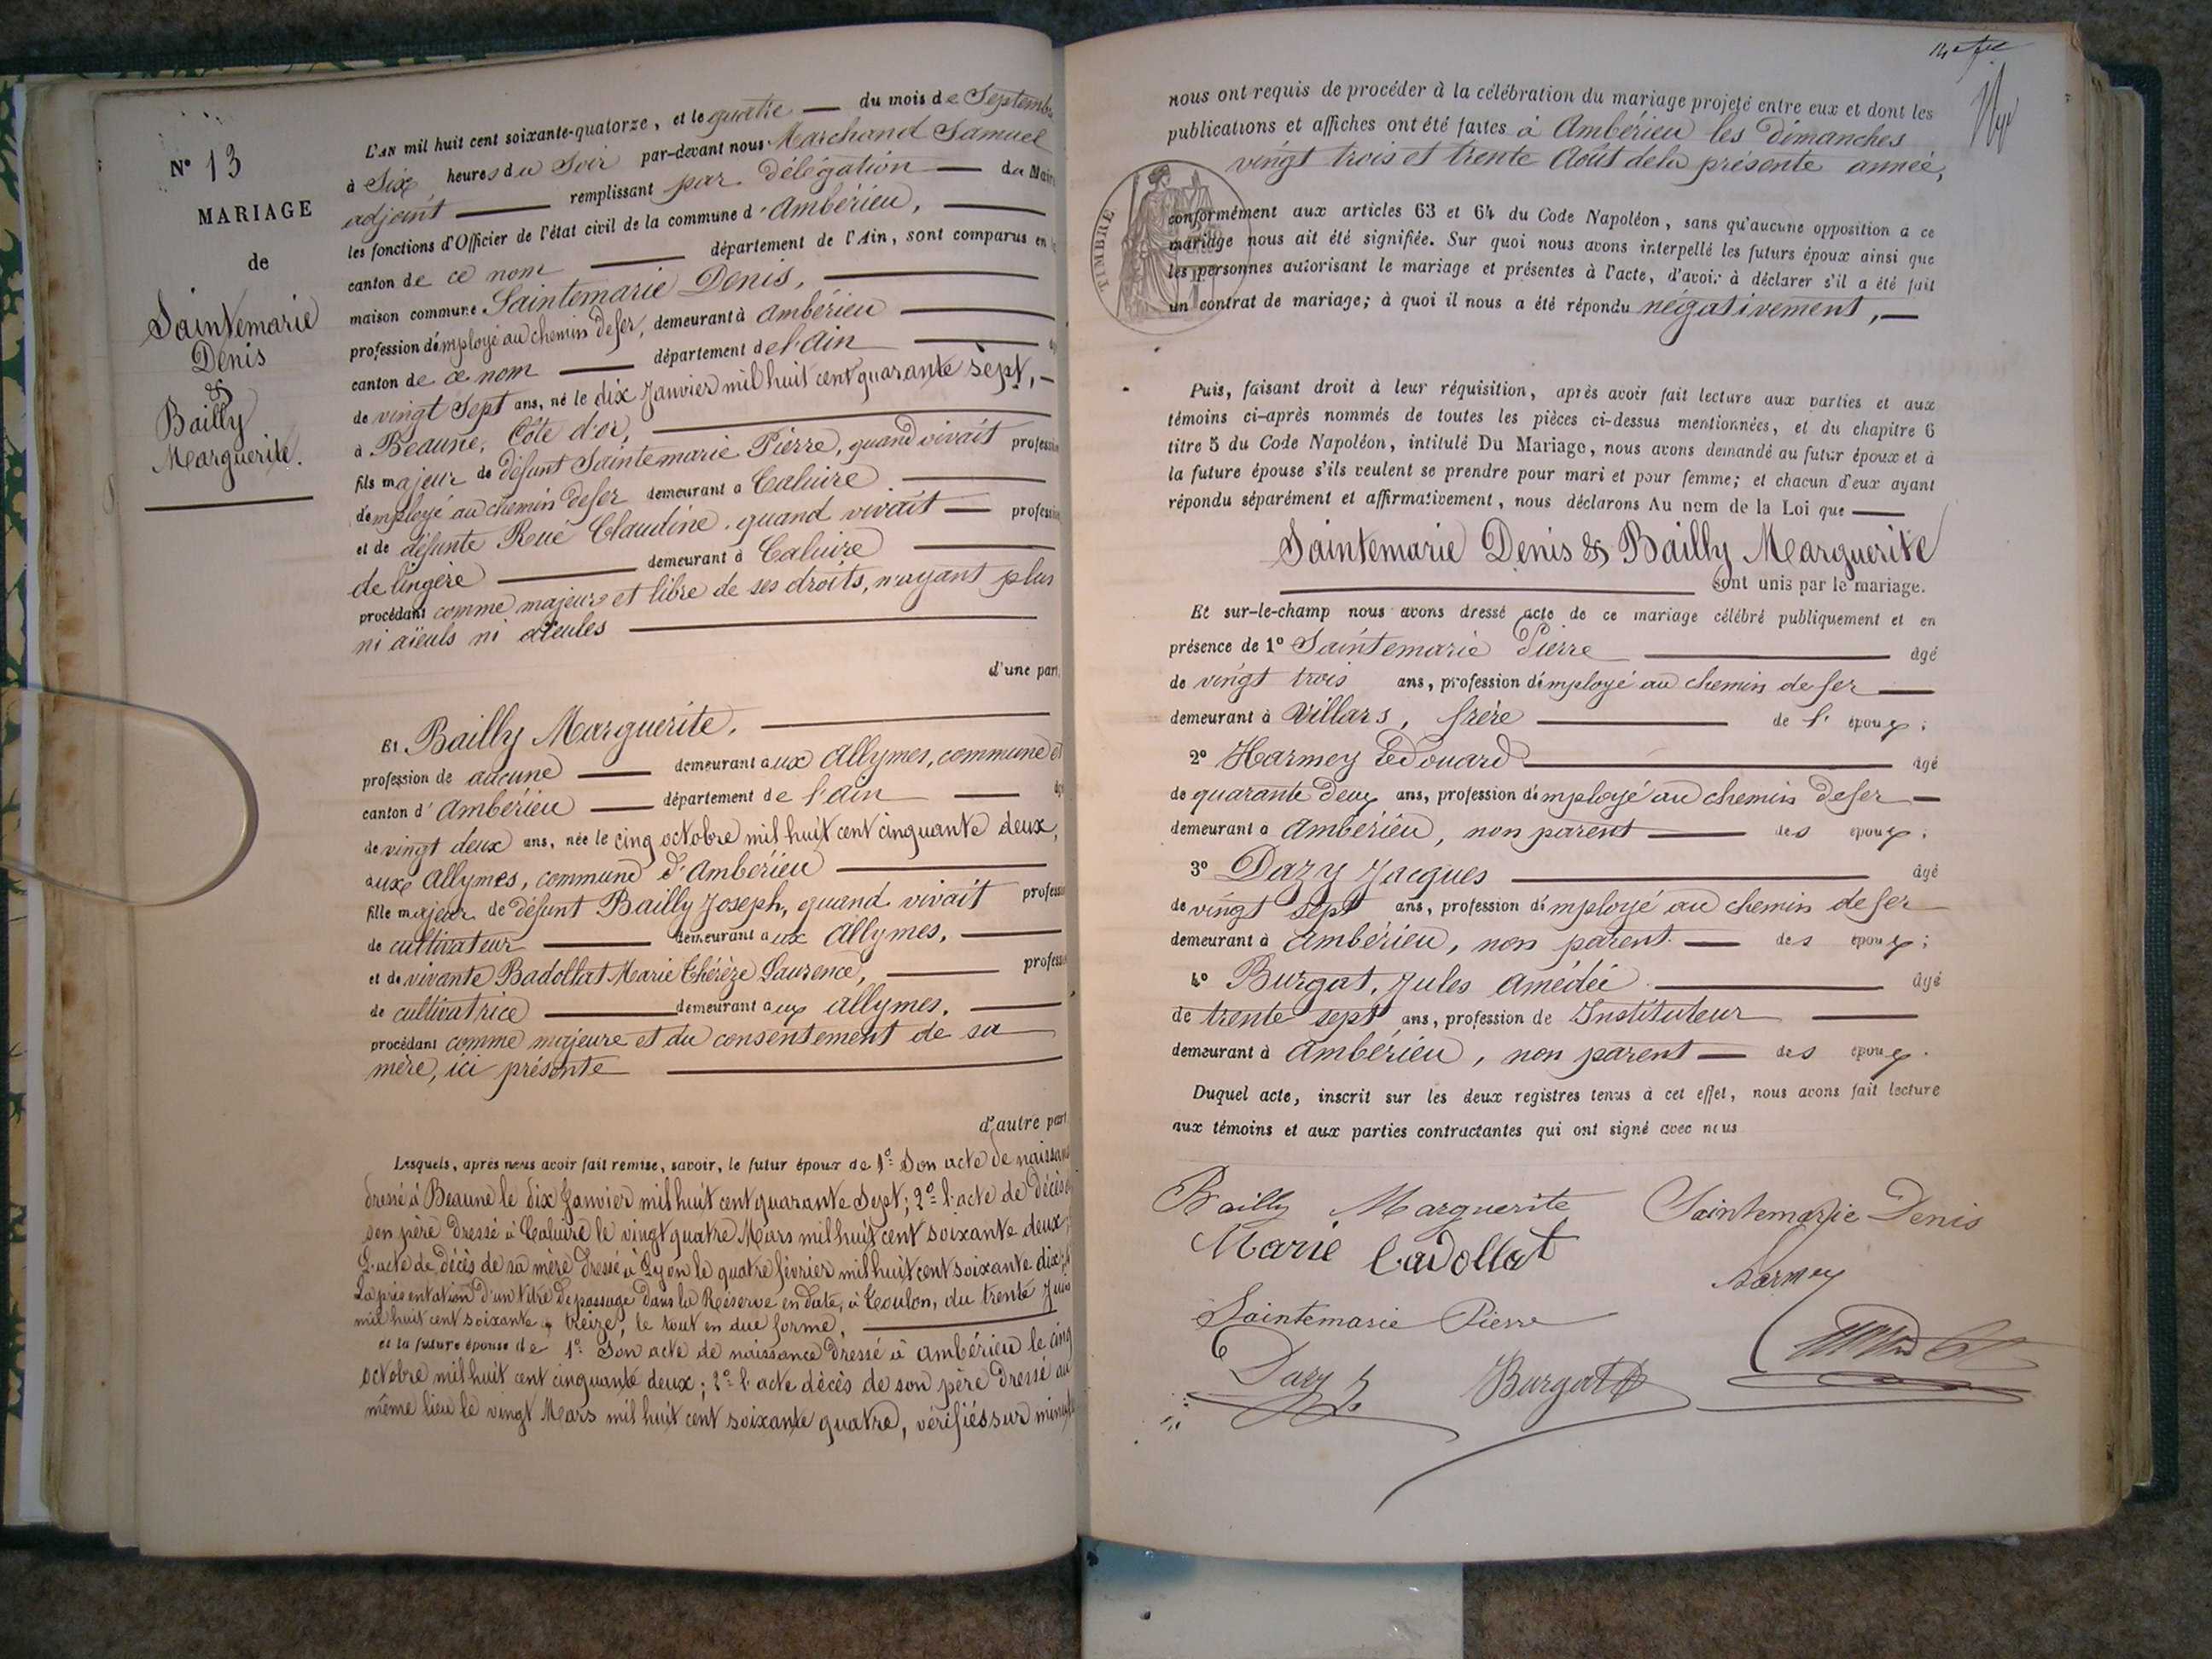 N° 13
MARIAGE
de
Saintemarie
Denis
&
Bailly
Marguerite.
L'AN mil huit cent soixante-quatorze, et le quatre — du mois de Septembre
à Six heures du Soir par-devant nous Marchand Samuel
adjoint — remplissant par délégation — du Maire
les fonctions d'Officier de l'état civil de la commune d'Ambérieu, —
canton de ce nom — département de l'Ain, sont comparus en la
maison commune Saintemarie Denis, —
profession d'employé au chemin de fer, demeurant à Ambérieu —
canton de ce nom — département de l'Ain —
de vingt Sept ans, né le dix Janvier mil huit cent quarante sept, —
à Beaune, Côte d'or, —
fils majeur de défunt Saintemarie Pierre, quand vivait profession
d'employé au chemin de fer demeurant a Caluire —
et de défunte Rué Claudine, quand vivait — profession
de lingère — demeurant à Caluire —
procédant comme majeur et libre de ses droits, n'ayant plus
ni aïeuls ni aïeules —
d'une part,
Et Bailly Marguerite, —
profession de aucune — demeurant aux Allymes, commune et
canton d'Ambérieu — département de l'Ain —
de vingt deux ans, née le cinq octobre mil huit cent cinquante deux,
aux Allymes, commune d'Ambérieu —
fille majeur de défunt Bailly Joseph, quand vivait profession
de cultivateur — demeurant aux Allymes, —
et de vivante Badollat Marie Thérèze Laurence, — profession
de cultivatrice — demeurant aux allymes, —
procédant comme majeure et du consentement de sa
mère, ici présente —
d'autre part
Lesquels, après nous avoir fait remise, savoir, le futur époux de 1° Son acte de naissance
dressé à Beaune le dix Janvier mil huit cent quarante Sept; 2° l'acte de décès de
son père dressé à Caluire le vingt quatre Mars mil huit cent soixante deux;
L'acte de décès de sa mère dressé à Lyon le quatre février mil huit cent soixante dix
La présentation d'un titre de passage dans la Réserve en date, à Toulon, du trente Juin
mil huit cent soixante treize, le tout en due forme, —
et la future épouse de 1° Son acte de naissance dressé à Ambérieu le cinq
octobre mil huit cent cinquante deux; 2° l'acte décès de son père dressé au
même lieu le vingt Mars mil huit cent soixante quatre, vérifiés sur minute
nous ont requis de procéder à la célébration du mariage projeté entre eux et dont les
publications et affiches ont été faites à Ambérieu les dimanches
vingt trois et trente Août de la présente année,
TIMBRE
conformément aux articles 63 et 64 du Code Napoléon, sans qu'aucune opposition à ce
mariage nous ait été signifiée. Sur quoi nous avons interpellé les futurs époux ainsi que
les personnes autorisant le mariage et présentes à l'acte, d'avoir à déclarer s'il a été fait
un contrat de mariage; à quoi il nous a été répondu négativement, —
Puis, faisant droit à leur réquisition, après avoir fait lecture aux parties et aux
témoins ci-après nommés de toutes les pièces ci-dessus mentionnées, et du chapitre 6
titre 5 du Code Napoléon, intitulé Du Mariage, nous avons demandé au futur époux et à
la future épouse s'ils veulent se prendre pour mari et pour femme; et chacun d'eux ayant
répondu séparément et affirmativement, nous déclarons Au nom de la Loi que —
Saintemarie Denis & Bailly Marguerite
— sont unis par le mariage.
Et sur-le-champ nous avons dressé acte de ce mariage célébré publiquement et en
présence de 1° Saintemarie Pierre — âgé
de vingt trois ans, profession d'employé au chemin de fer —
demeurant à Villars, frère — de l' époux;
2° Harmey Edouard — âgé
de quarante deux ans, profession d'employé au chemin de fer —
demeurant a Ambérieu, non parent — des epoux;
3° Dazy Jacques — âgé
de vingt sept ans, profession d'employé au chemin de fer
demeurant à Ambérieu, non parent — des époux;
4° Burgat, Jules Amédée — âgé
de trente sept ans, profession de Instituteur —
demeurant à Ambérieu, non parent — des époux.
Duquel acte, inscrit sur les deux registres tenus à cet effet, nous avons fait lecture
aux témoins et aux parties contractantes qui ont signé avec nous
Bailly Marguerite Saintemarie Denis
Marie Badollat
Harmey
Saintemarie Pierre
Dazy Burgat